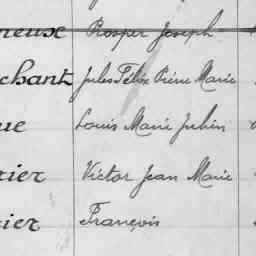 neuse Prosper Joseph
chant Jules Félix Pierre Marie
ue Louis Marie Julien
rier Victor Jean Marie
rier François